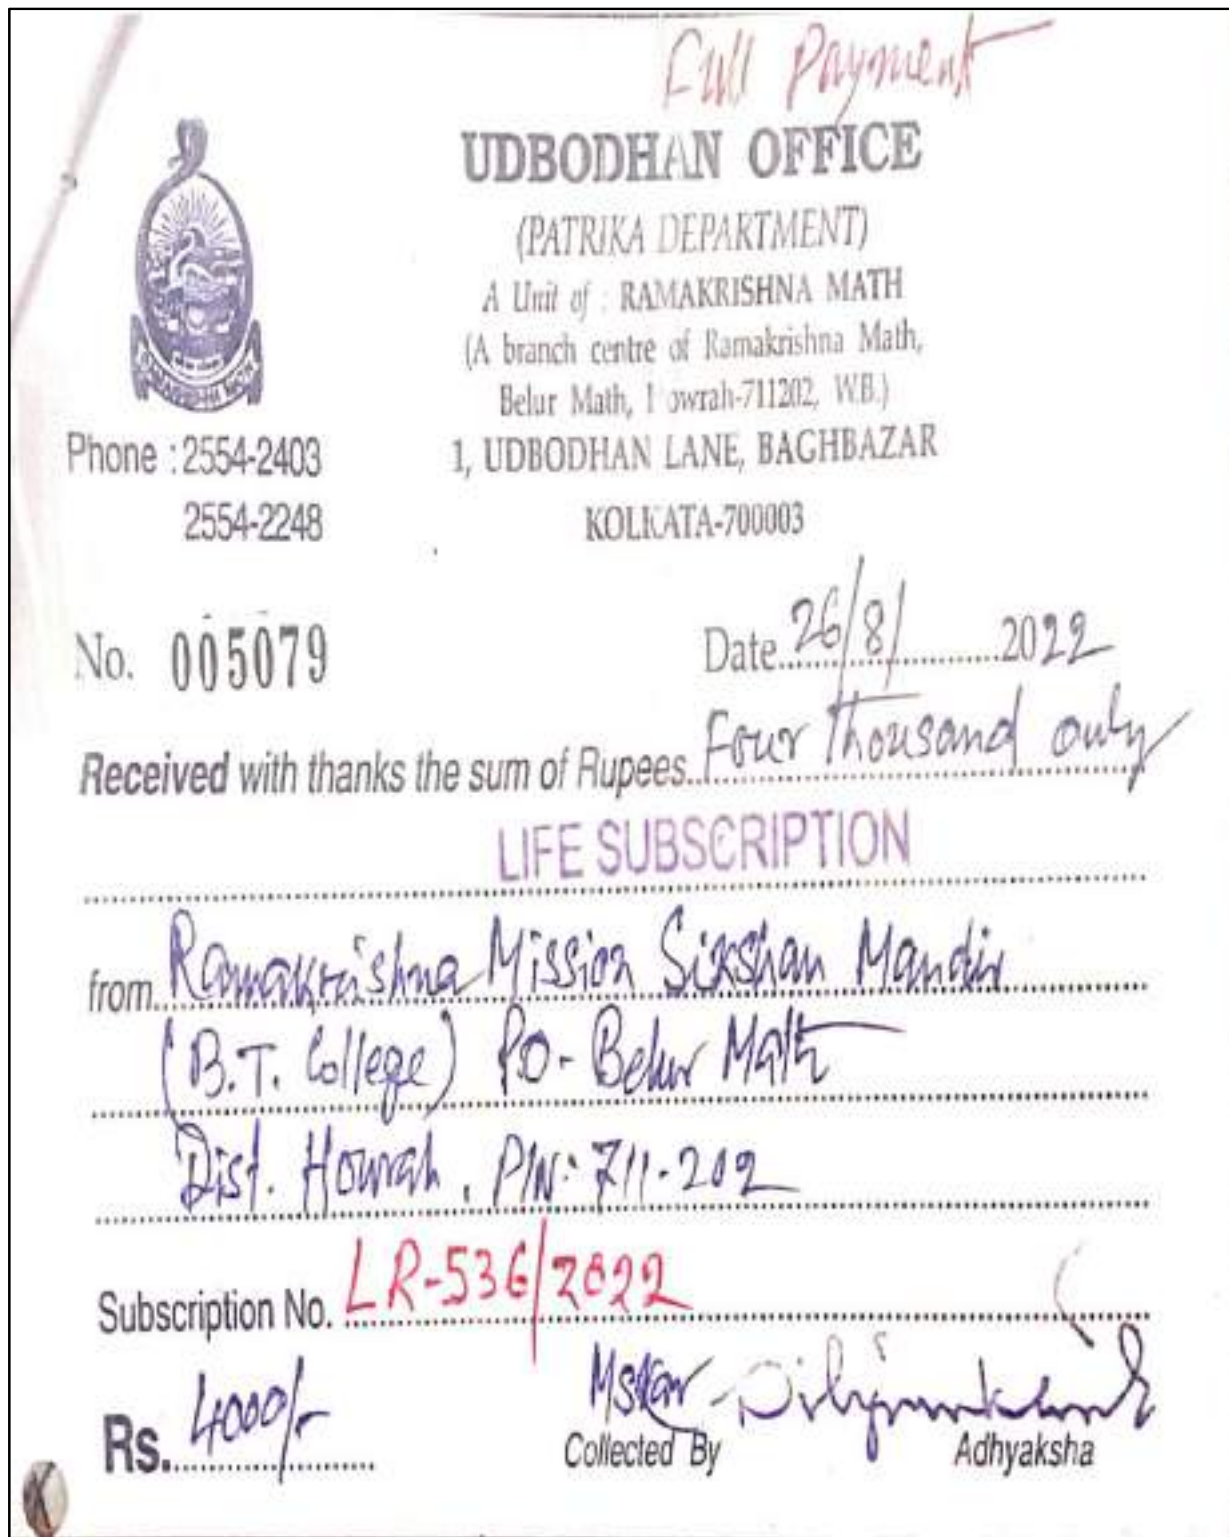 Full Payment
UDBODHAN OFFICE
(PATRIKA DEPARTMENT)
A Unit of : RAMAKRISHNA MATH
(A branch centre of Ramakrishna Math,
Belur Math, Howrah-711202, W.B.)
1, UDBODHAN LANE, BAGHBAZAR
KOLKATA-700003
RAMAKRISHNA MATH
Phone : 2554-2403
2554-2248
No. 005079
Date 26/8/ 2022
Received with thanks the sum of Rupees Four Thousand only
LIFE SUBSCRIPTION
from Ramakrishna Mission Sikshan Mandir
(B.T. College) PO- Belur Math
Dist. Howrah, PIN: 711-202
Subscription No. LR-536/2022
Rs. 4000/-
Collected By
Adhyaksha